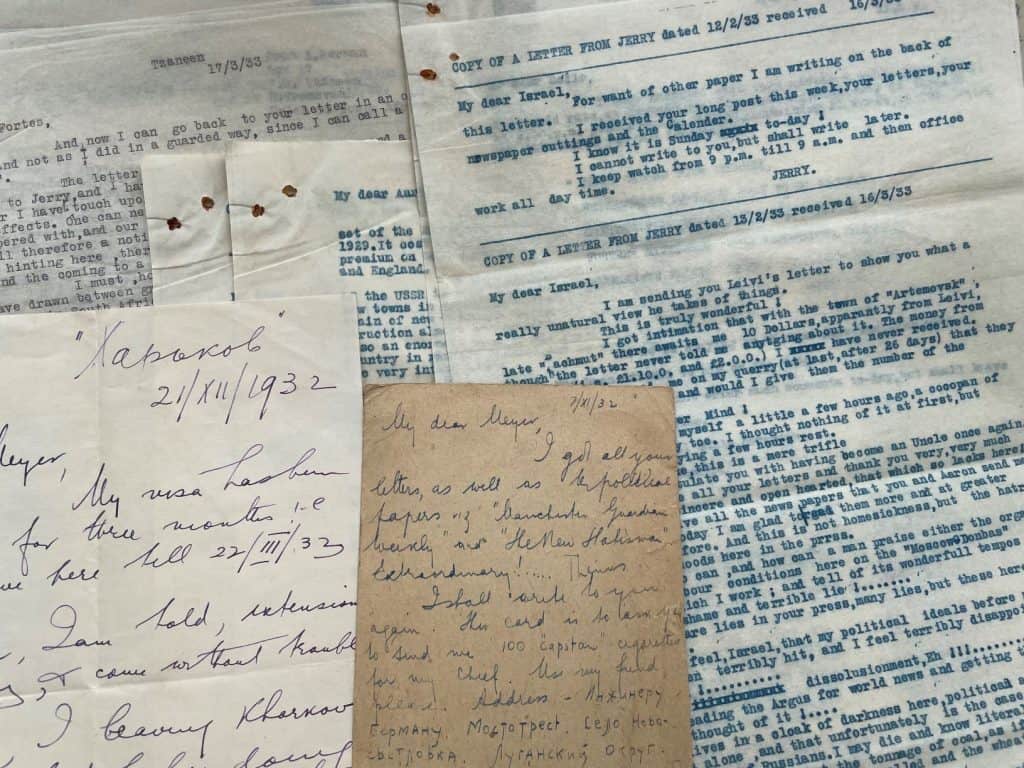 Tzaneen
17/3/33
Fortes,
And now I can go back to your letter in an o
and not as I did in a guarded way, since I can call a
The letter
to Jerry,and I ha
r I have touch upo
ffects. One can ne
pered with,and our
ll therefore a noti
hinting here ,ther
nd the coming to a
I must ,ho
ave drawn between g
My dear Ann
set of the
1929.It ces
premium on
and England.
the USSR
w towns in
ain of new
ruction al
so an eno
untry in
e very in
COPY OF A LETTER FROM JERRY dated 12/2/33 received 16/3/33
My dear Israel,
For want of other paper I am writing on the back of
this letter.
I received your long post this week,your letters,your
newspaper cuttings and the Calender.
I know it is Sunday to-day !
I cannot write to you,but shall write later.
I keep watch from 9 p.m. till 9 a.m. and then office
work all day time.
JERRY.
COPY OF A LETTER FROM JERRY dated 13/2/33 received 16/3/33
My dear Israel,
I am sending you Leivi's letter to show you what a
really unnatural view he takes of things.
This is truly wonderful !
I got intimation that with the town of "Artemovsk" ,
late "Bachmut" there awaits me 10 Dollars,apparently from Leivi,
though the letter never told me anytging about it. The money from
£1.10.0. and £2.0.0.) I have never received.
me on my querry(at last,after 26 days) that they
and would I give them the number of the
er Mind !
myself a little a few hours ago,a cocopan of
too. I thought nothing of it at first,but
ring a few hours rest.
e,this is a mere trifle
ulate you with having become an Uncle once again
all your letters and thank you very,very much
incere and open hearted,that which so lacks here
ve all the news papers that you and Aaron send me
day I am glad to read them more and at greater
fore. And this is not homesickness,but the hatr
oods here in the prrss.
can ,and how can a man praise either the orga
our conditions here on the "Moscow-Donbas"
ich I work ; and tell of its wonderful tempos
hame and terrible lie !......
re lies in your press,many lies,but these here
feel,Israel,that my political ideals before
n terribly hit, and I feel terribly disappo
dissolusionment,Eh !!!......
ading the Argus for world news and getting th
thought of it !....
ives in a cloak of darkness here,political a
and that unfortunately is the case
alone',and Russians.I may die and know literal
the tonnage of coal,as if
led and the whea
"Харьков"
21/XII/1932
Meyer,
My visa has been
for three months i.e
me here till 22/III/33
I am told, extension
, & come without troubl
I leaving Kharkov
7/XI/32
My dear Meyer,
I got all your
letters, as well as the political
papers "Manchester Guardian
Weekly" and "The New Statesman".
Extraordinary!..... Thanks
I shall write to you
again. This card is to ask you
to send me 100 "Capstan" cigarettes
for my Chief. Use my fund
please. Address - Инжинеру
Герману. Мостотрест. Село Ново-
светловка. Луганский Округ.